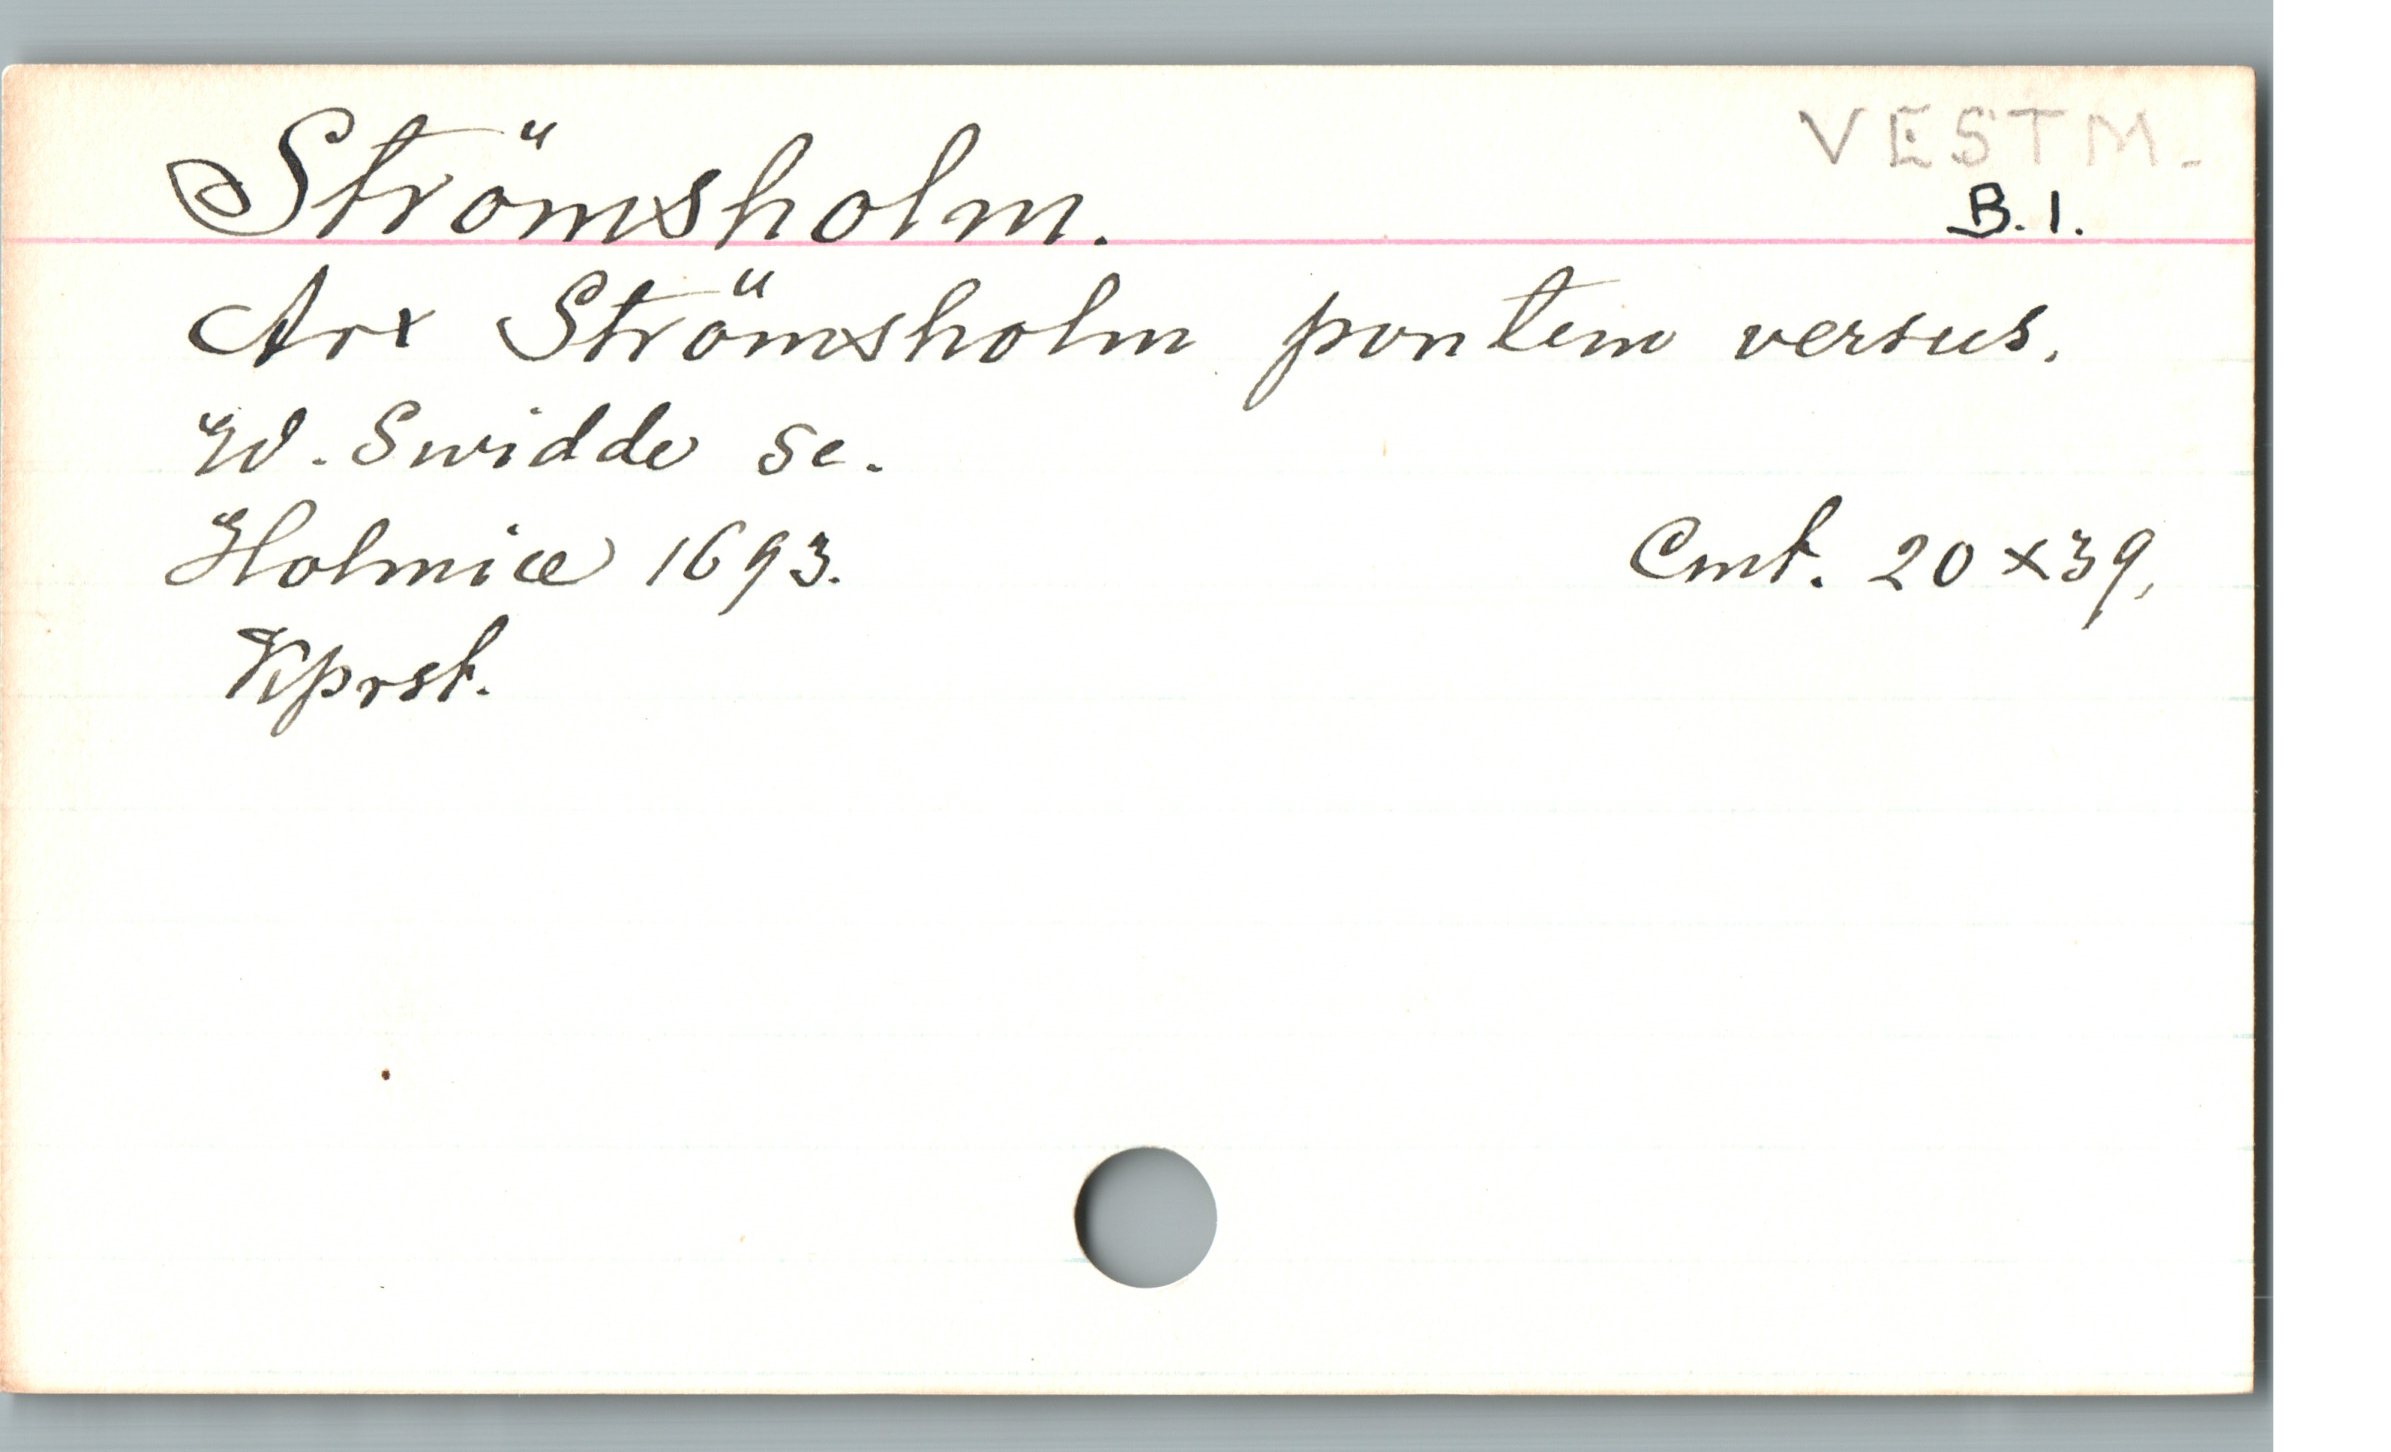 Strömsholm.
VESTM.
B.1.
Arx Strömsholm pontem versus.
W. Swidde sc.
Holmiæ 1693.
Cmt. 20 x 39.
Kprst.